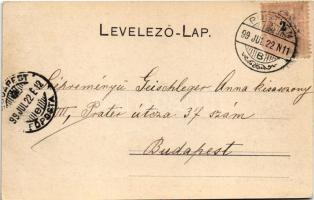 LEVELEZŐ-LAP.
99 JUL. 22 N11
B
BUDAPEST
99 JUL 22 E12
FŐPOSTA
Geischleger Anna kisasszony
VIII, Prater útcza 37 szám
Budapest